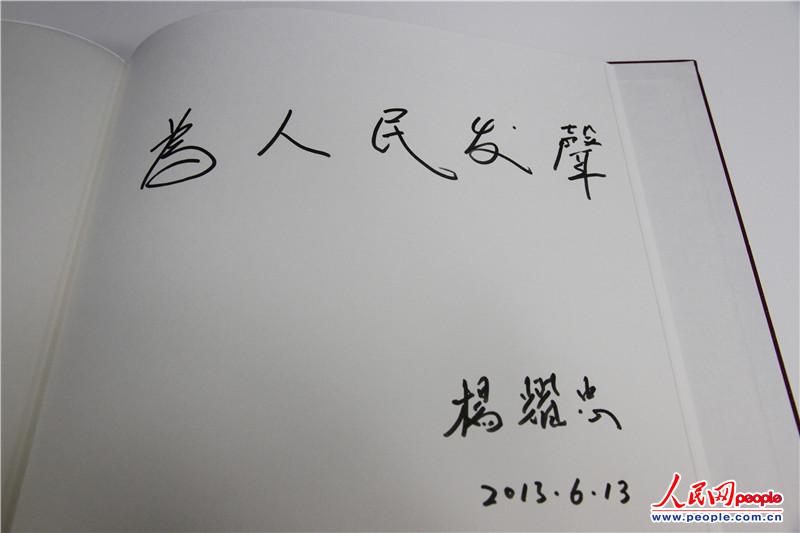 為人民发聲
楊耀忠
2013.6.13
人民网 people
www.people.com.cn